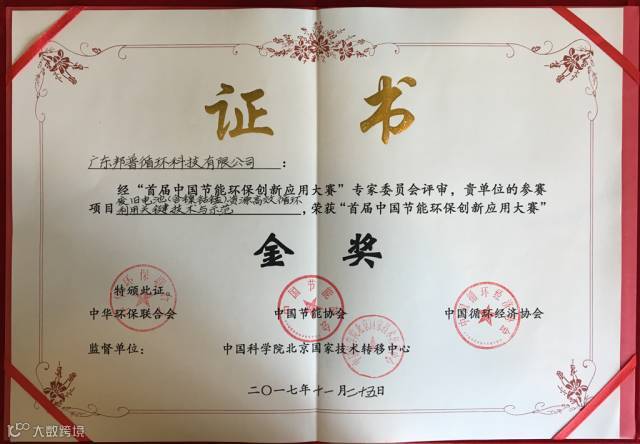 证 书
广东邦普循环科技有限公司：
经“首届中国节能环保创新应用大赛”专家委员会评审，贵单位的参赛
项目废旧电池(含镍钴锰)资源高效循环
利用关键技术与示范，荣获“首届中国节能环保创新应用大赛”
金 奖
特颁此证。
中华环保联合会 中国节能协会 中国循环经济协会
监督单位： 中国科学院北京国家技术转移中心
二〇一七年十一月二十五日
大数跨境